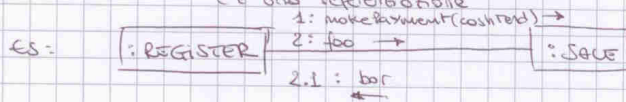 1: makePayment(cashTend) →
ES: : REGISTER 2: foo → : SALE
2.1 : bar ←